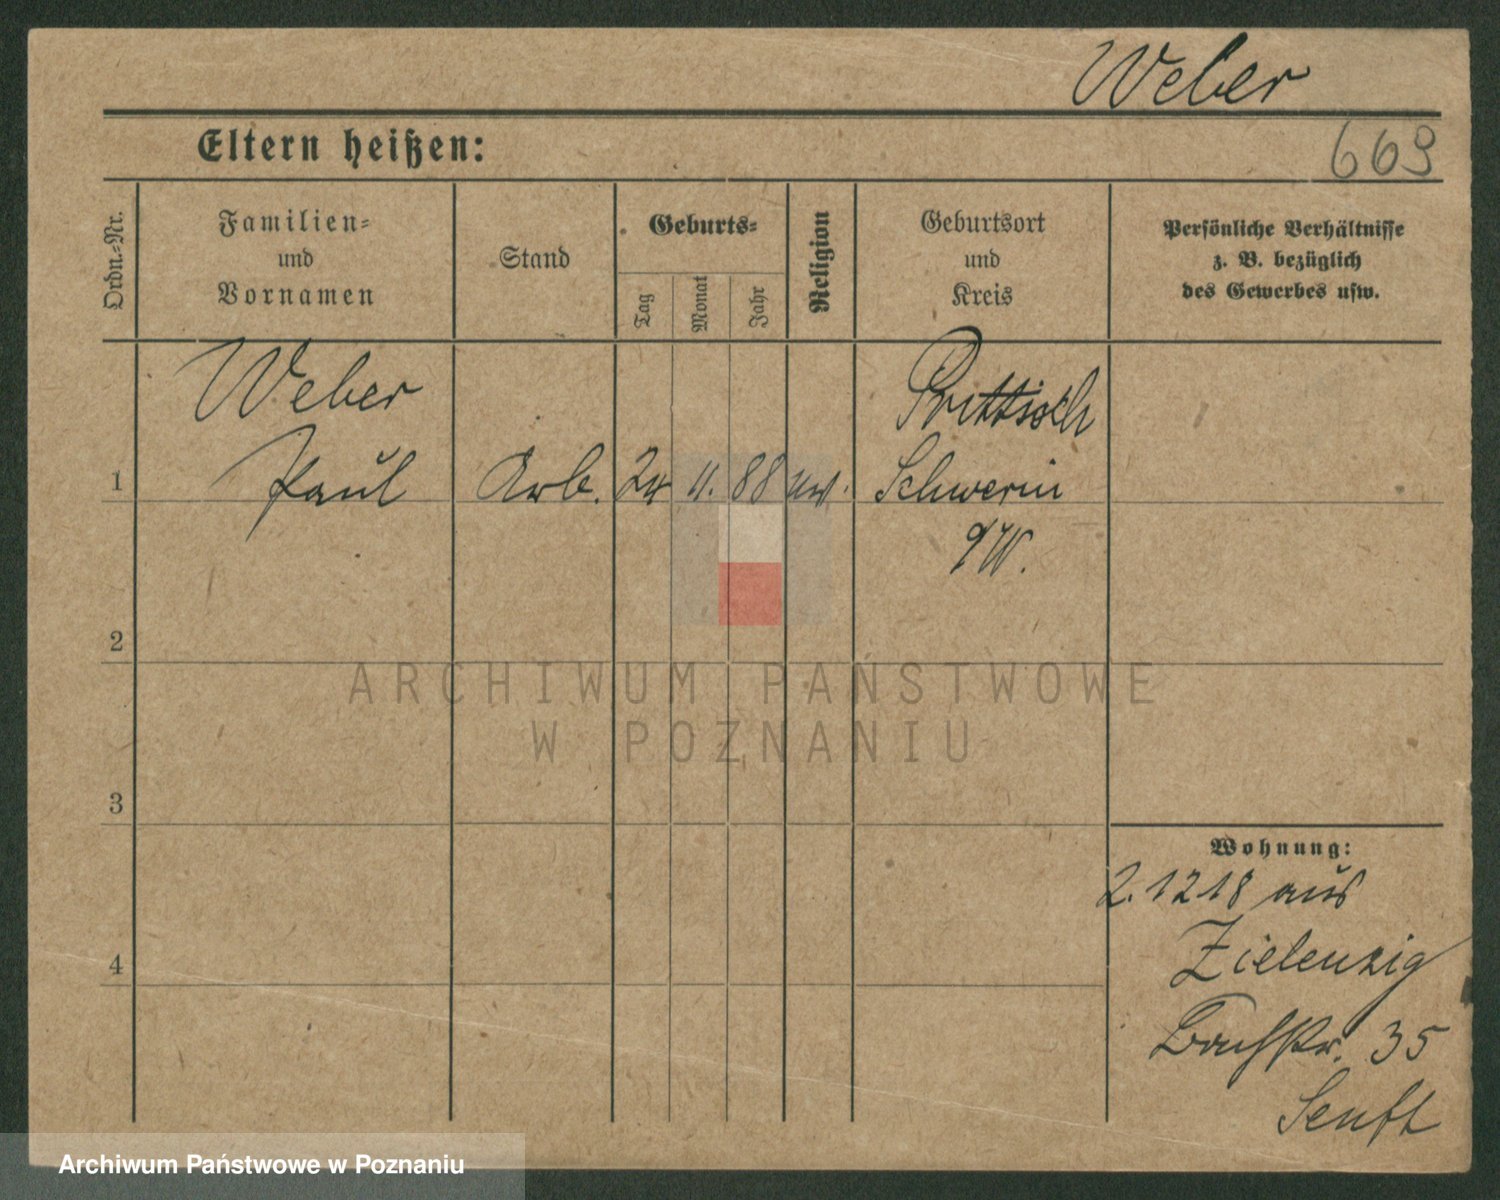 Weber
Eltern heißen:
669
Ordn.=Nr.
Familien=
und
Vornamen
Stand
Geburts=
Tag
Monat
Jahr
Religion
Geburtsort
und
Kreis
Persönliche Verhältnisse
z. B. bezüglich
des Gewerbes usw.
Weber
Paul
1
Arb.
24
11.
88
Prittisch
Schwerin
a/W.
2
3
4
Wohnung:
2.1218 aus
Zielenzig
35
Senft
ARCHIWUM PAŃSTWOWE
W POZNANIU
Archiwum Państwowe w Poznaniu